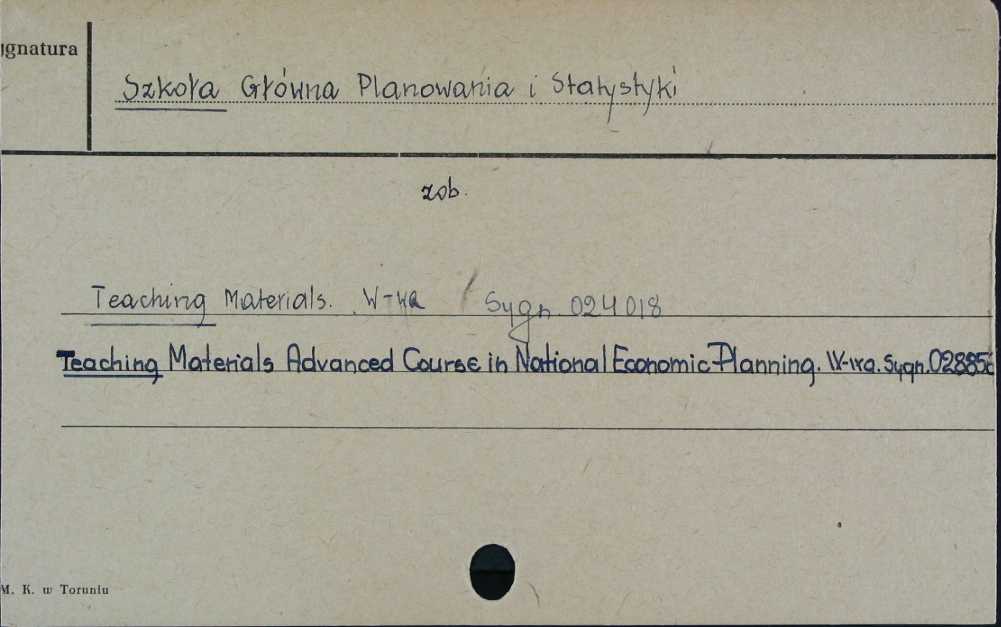 ygnatura
Szkoła Główna Planowania i Statystyki
zob.
Teaching Materials. W-wa Sygn. 024018
Teaching Materials Advanced Course in National Economic Planning. W-wa. Sygn. 02885
M. K. w Toruniu